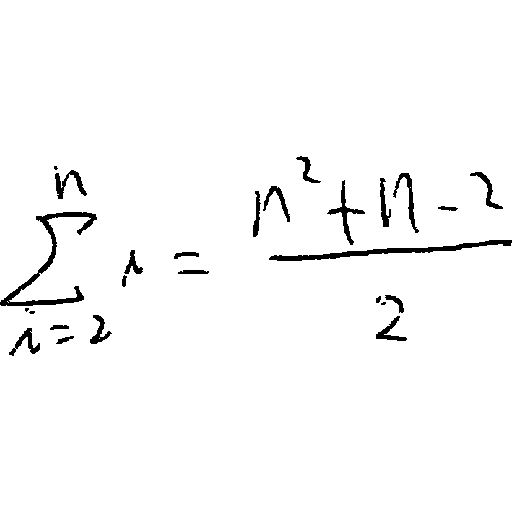 \sum_{i=2}^{n} i = \frac{n^2+n-2}{2}